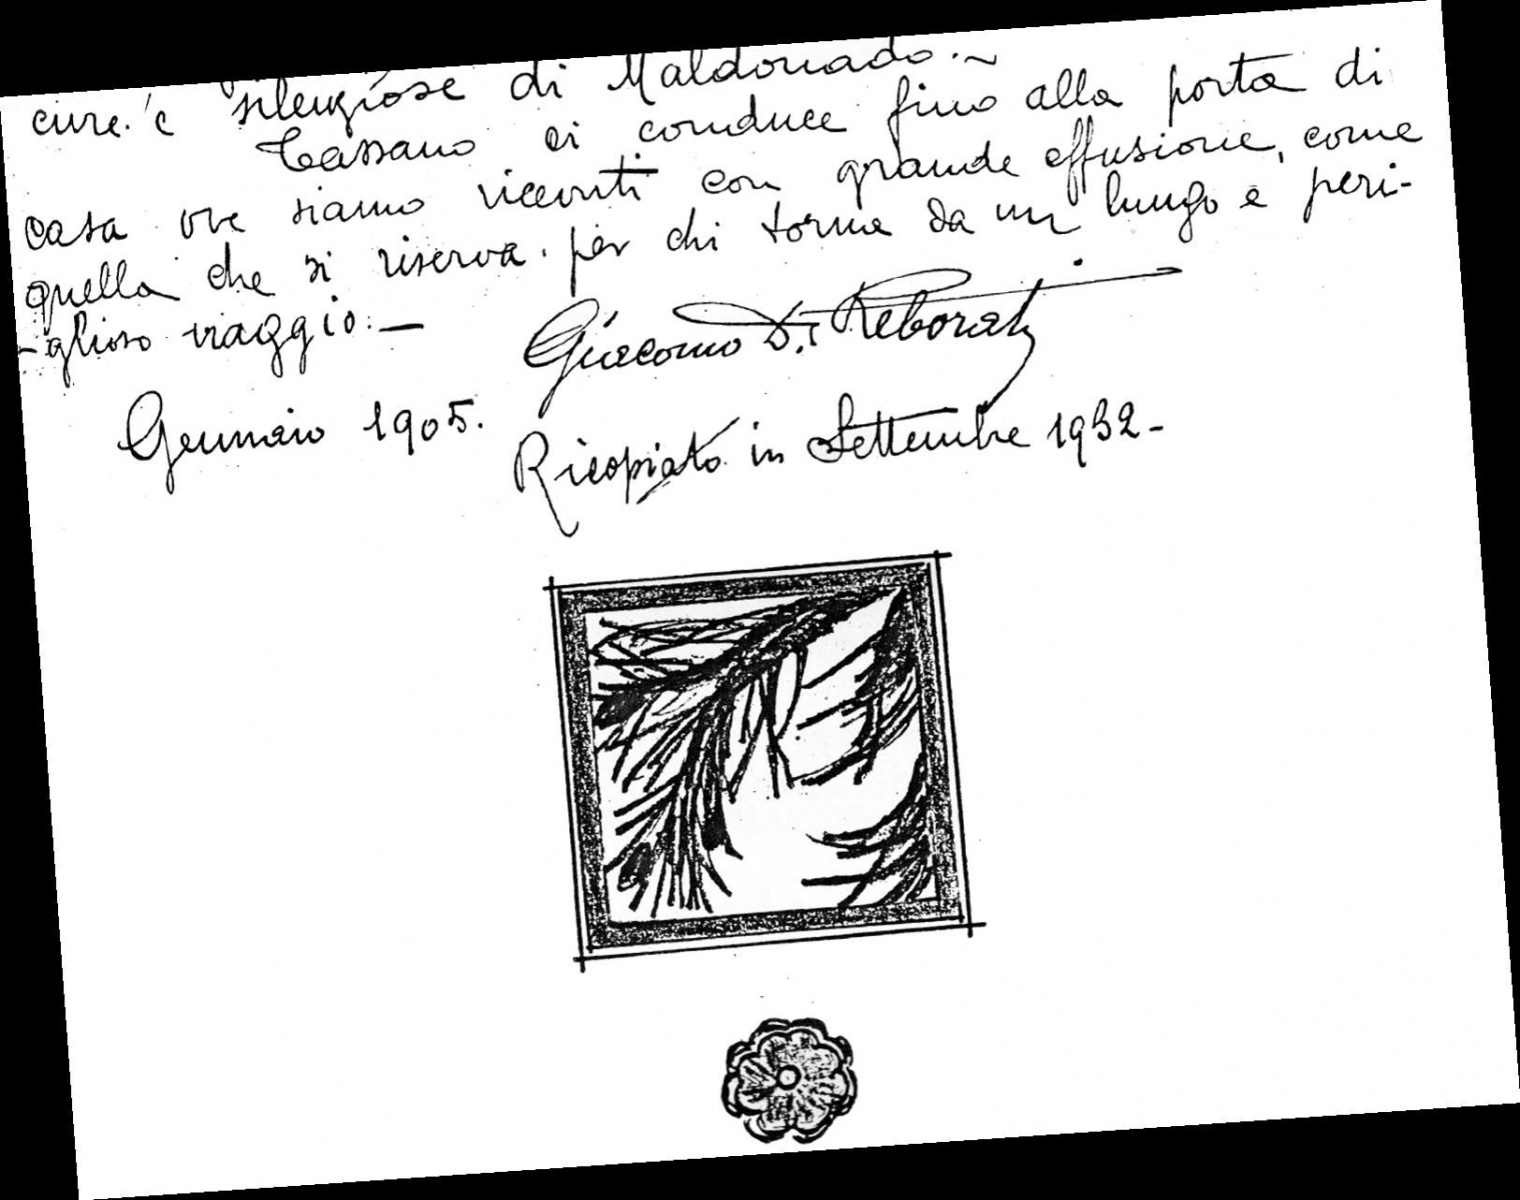 cure e silenziose di Maldonado.~
Cassano ci conduce fino alla porta di
casa ove siamo ricevuti con grande effusione, come
quella che si riserva per chi torna da un lungo e peri-
-glioso viaggio.—
Giacomo Di Reborati
Gennaio 1905.
Ricopiato in Settembre 1932-